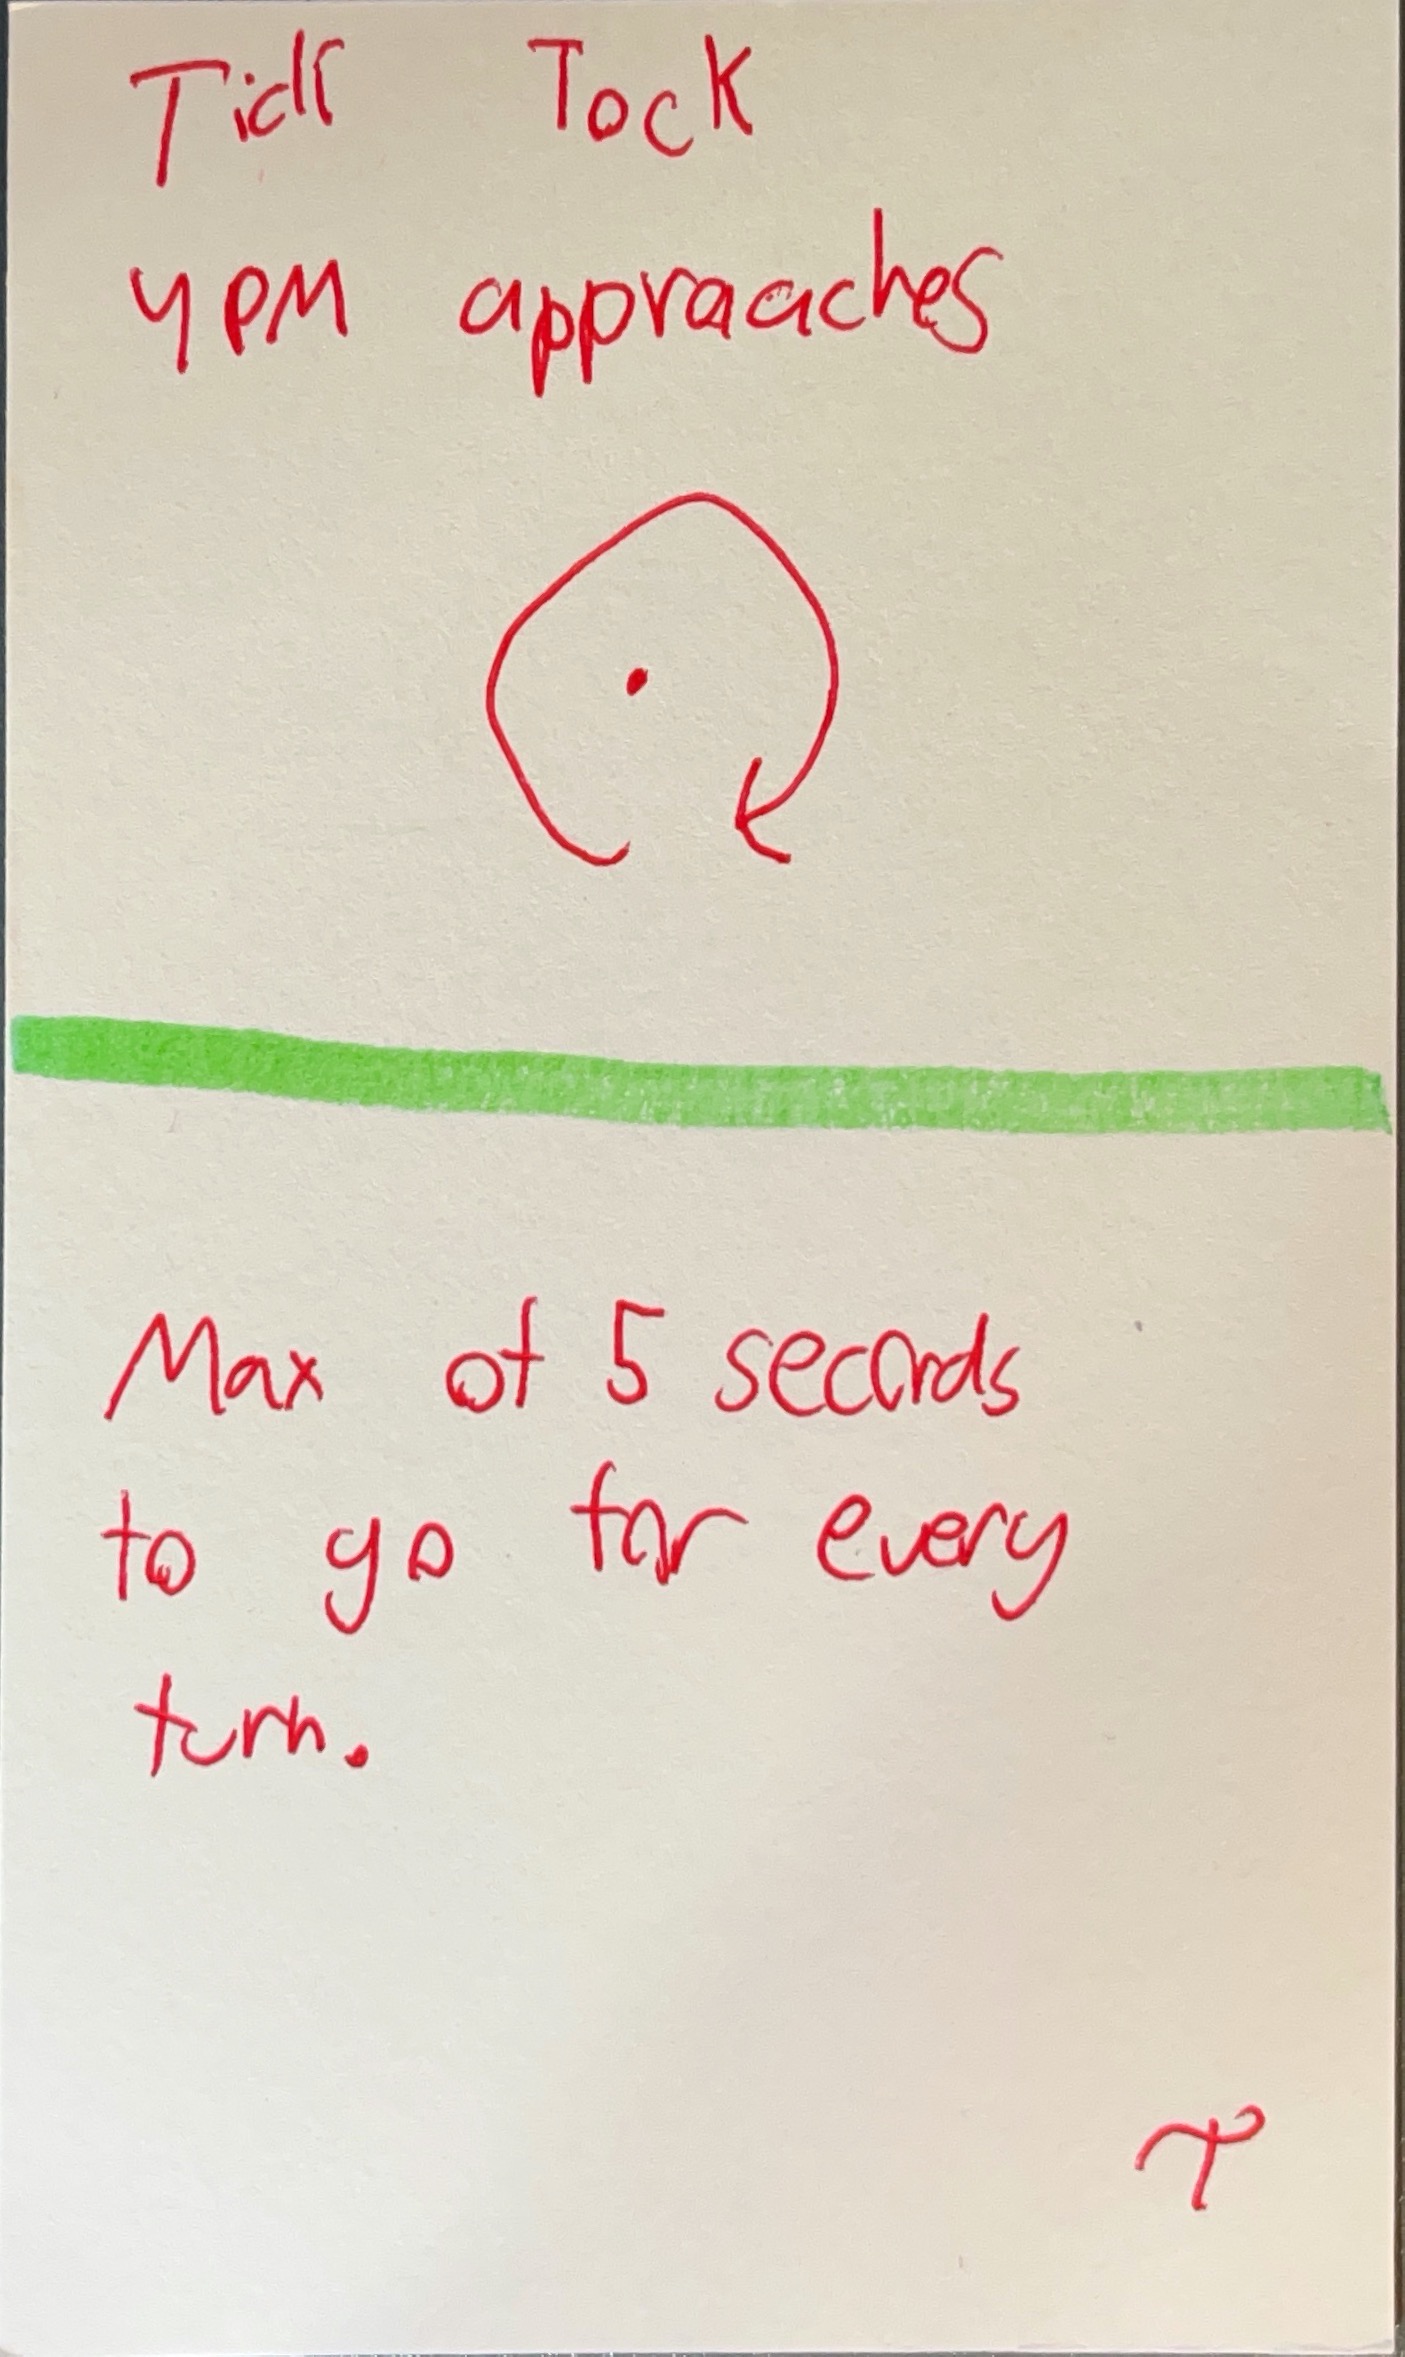 Tick Tock
4 PM approaches
Max of 5 seconds
to go for every
turn.
τ